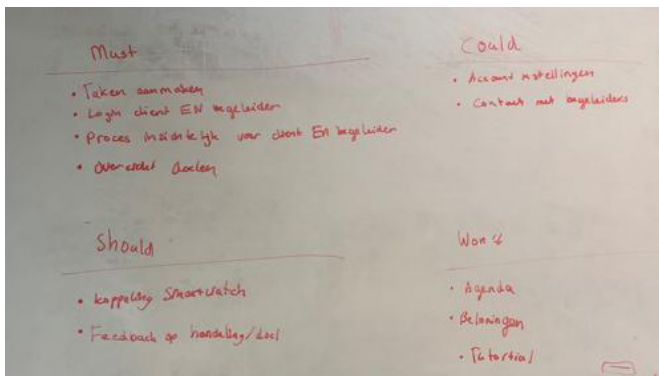 Must
• Taken aanmaken
• Login client EN begeleider
• Proces inzichtelijk voor client EN begeleider
• Overzicht doelen
Could
• Account instellingen
• Contact met begeleiders
Should
• koppeling Smartwatch
• Feedback op handeling/doel
Won't
• Agenda
• Beloningen
• Tutorial